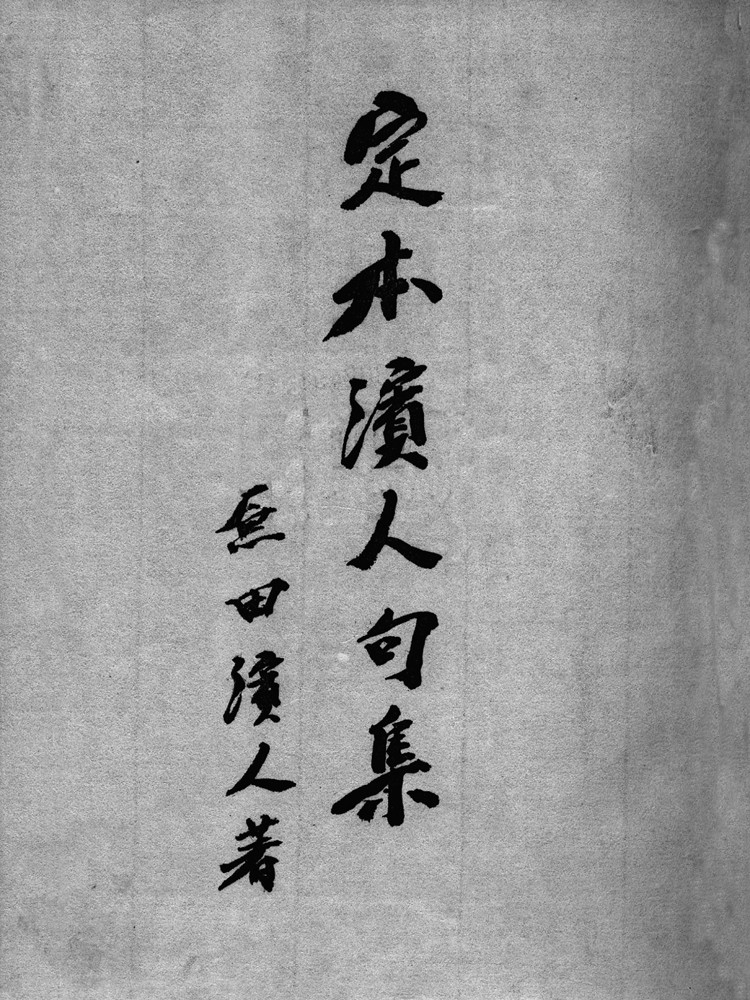 定本濱人句集
原田濱人著